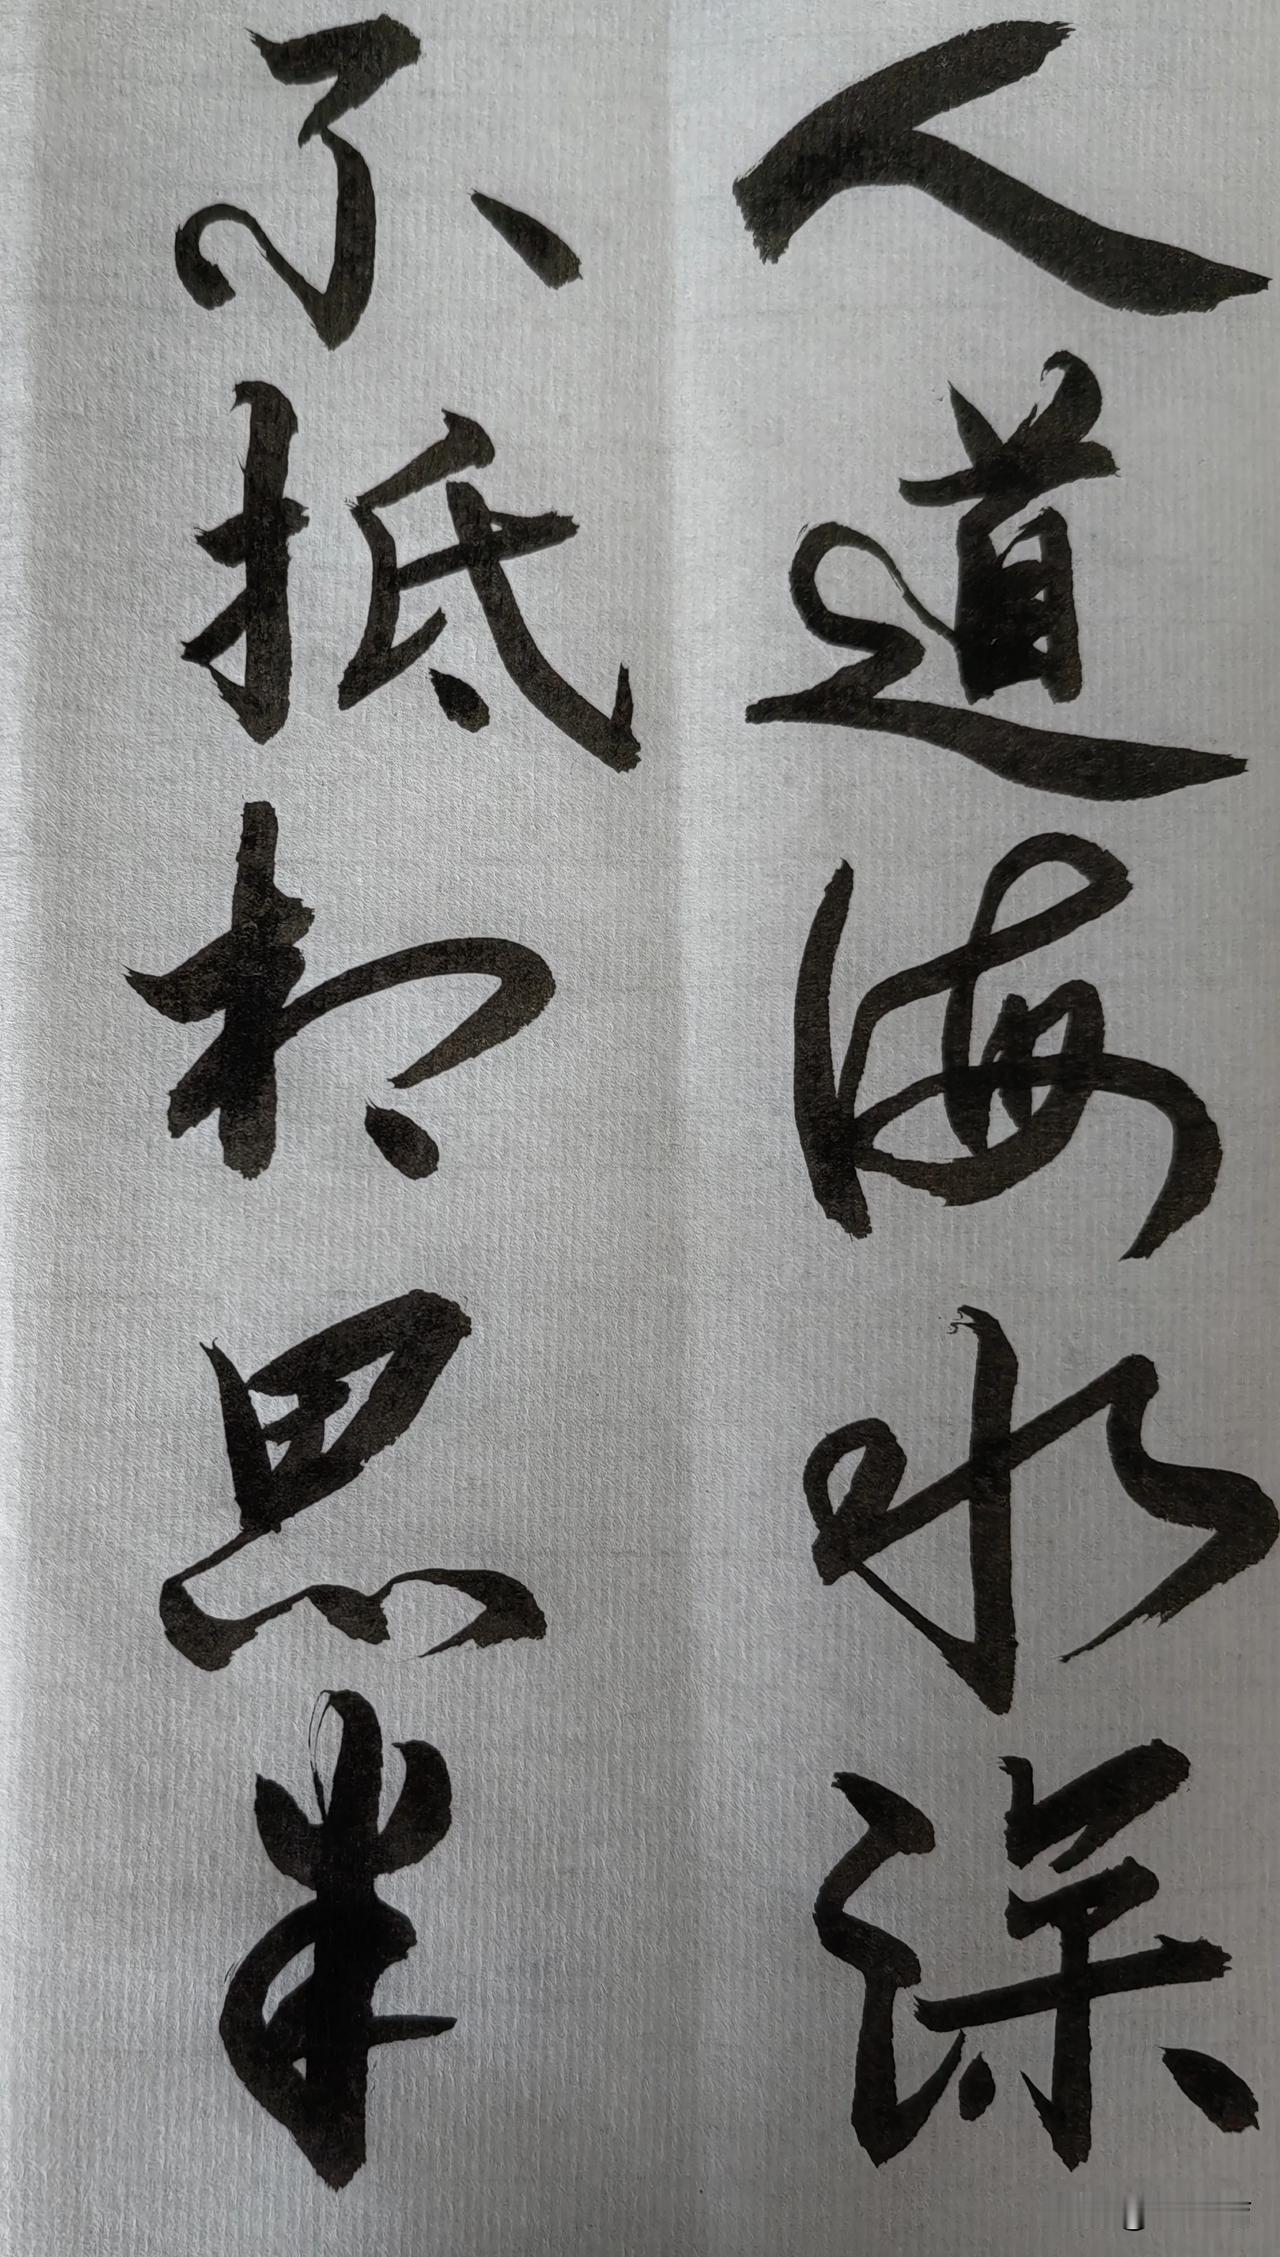 人道海水深
不抵相思半